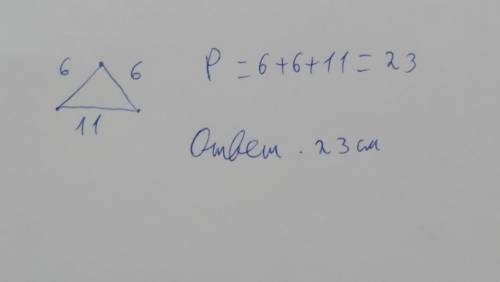 6 6
11
P = 6+6+11 = 23
Ответ. 23 см